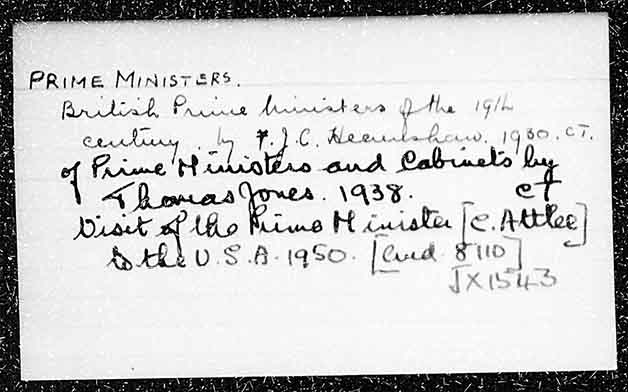 PRIME MINISTERS.
British Prime Ministers of the 19th
century. by F.J.C. Hearnshaw. 1930. CT.
of Prime Ministers and Cabinets by
Thomas Jones. 1938. CT
Visit of the Prime Minister [C. Attlee]
to the U.S.A. 1950. [Cmd 8110]
JX1543